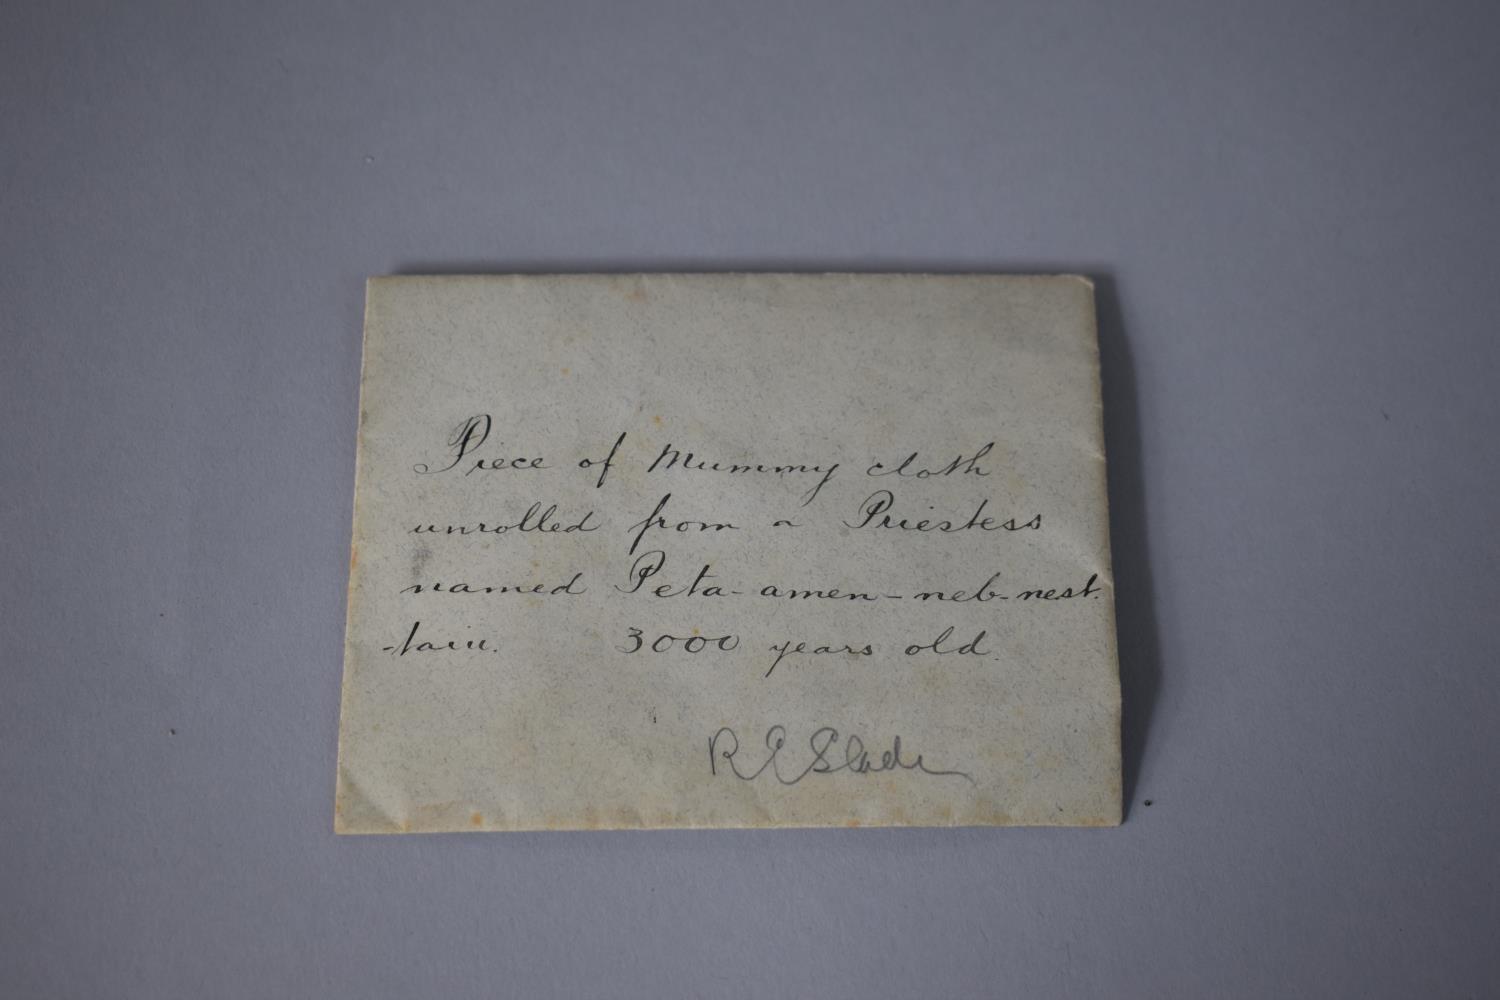 Piece of Mummy cloth
unrolled from a Priestess
named Peta-amen-neb-nest.
-taiu. 3000 years old.
R E Slade